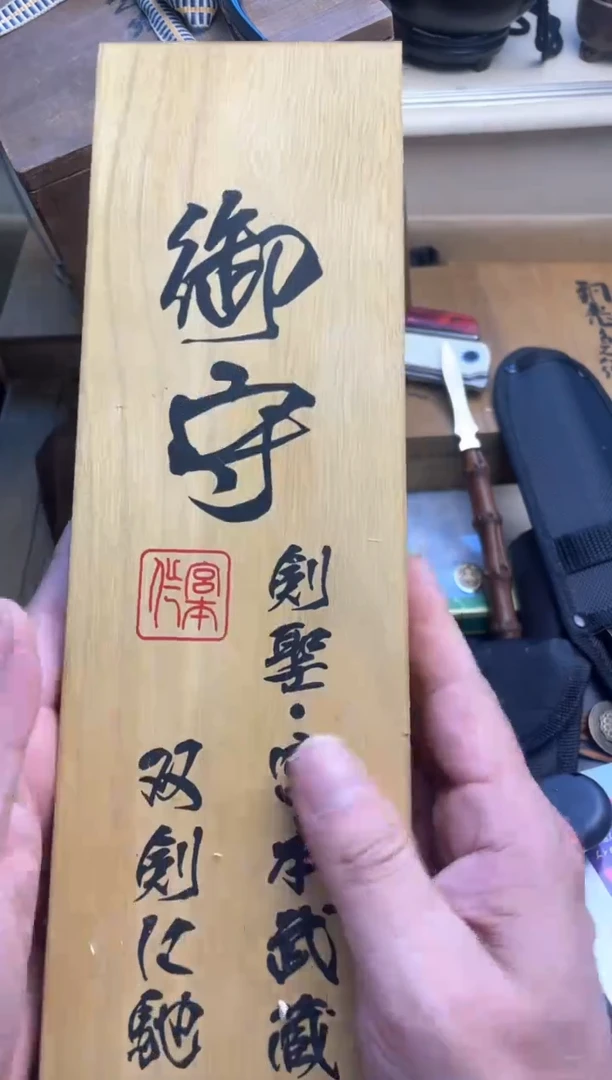 御守
剣聖・宮本武蔵
双剣に馳